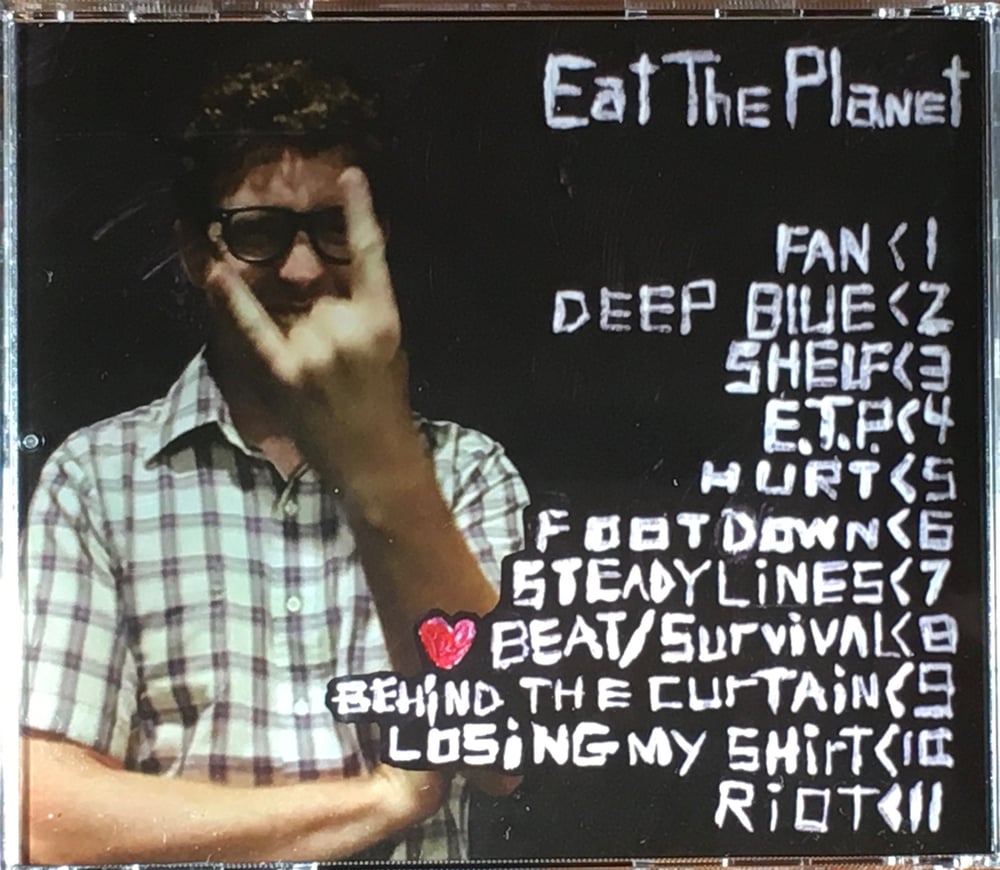 Eat The Planet
FAN < 1
DEEP BLUE < 2
SHELF < 3
E.T.P. < 4
HURT < 5
FOOT DOWN < 6
STEADY LiNES < 7
❤ BEAT/SurvivAL < 8
BEHiND THE CUrTAiN < 9
LOSiNG MY SHirT < 10
RiOT < 11